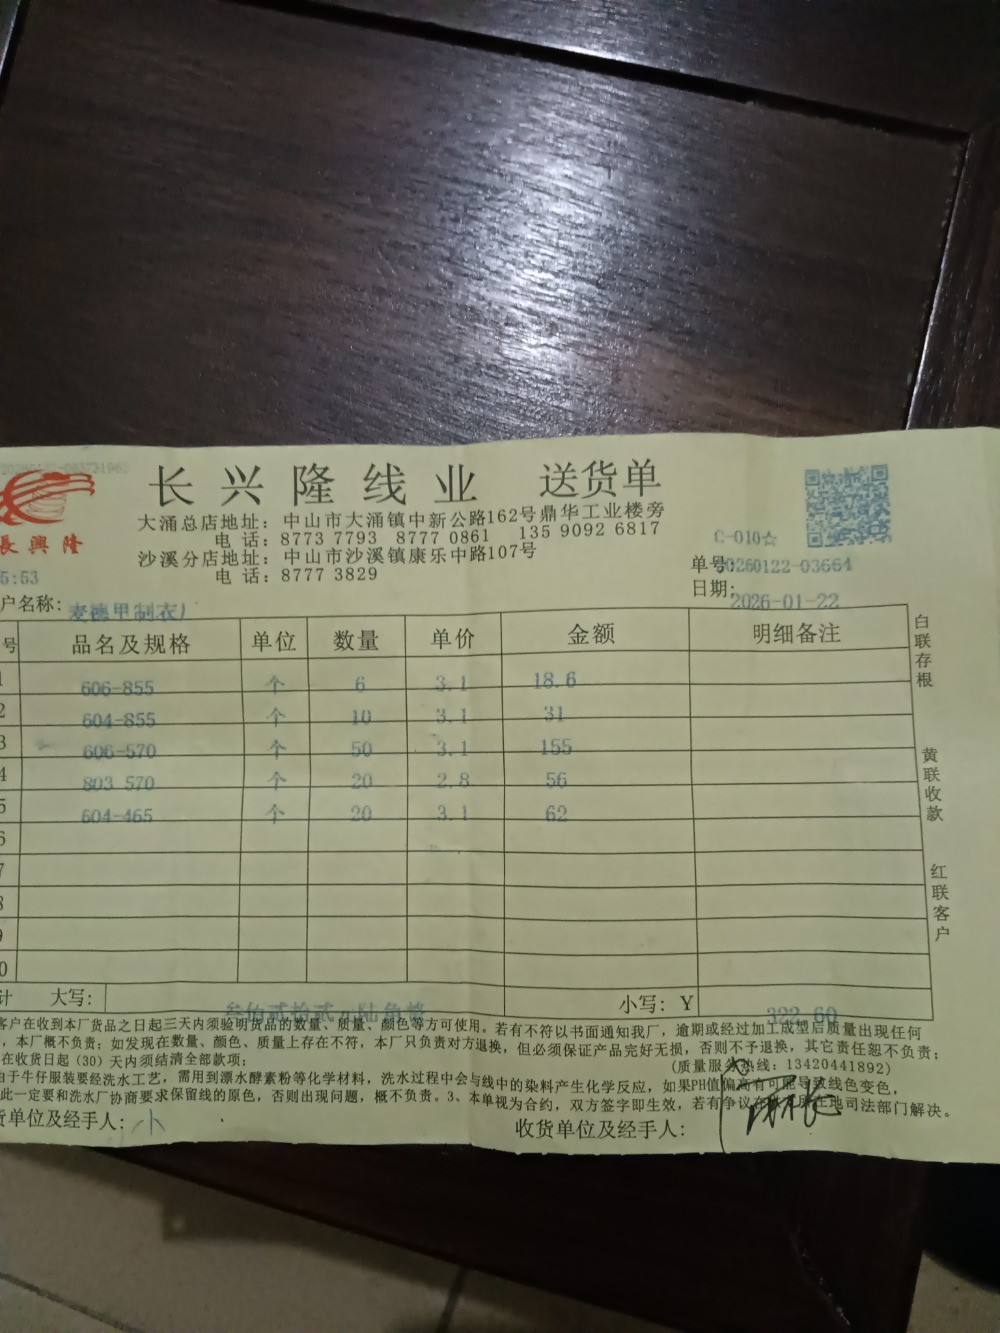 长兴隆线业 送货单
長興隆
大涌总店地址：中山市大涌镇中新公路162号鼎华工业楼旁
电 话：8773 7793 8777 0861 135 9092 6817
沙溪分店地址：中山市沙溪镇康乐中路107号
电 话：8777 3829
C-010☆
5:53
单号:20260122-03664
日期:2026-01-22
户名称: 麦德甲制衣厂
号 品名及规格 单位 数量 单价 金额 明细备注
1 606-855 个 6 3.1 18.6
2 604-855 个 10 3.1 31
3 606-570 个 50 3.1 155
4 803 570 个 20 2.8 56
5 604-465 个 20 3.1 62
6
7
8
9
0
计 大写: 叁佰贰拾贰元陆角 小写: Y 322.60
白联存根
黄联收款
红联客户
客户在收到本厂货品之日起三天内须验明货品的数量、质量、颜色等方可使用。若有不符以书面通知我厂，逾期或经过加工成型后质量出现任何
，本厂概不负责；如发现在数量、颜色、质量上存在不符，本厂只负责对方退换，但必须保证产品完好无损，否则不予退换，其它责任恕不负责；
在收货日起（30）天内须结清全部款项；
(质量服务热线：13420441892)
由于牛仔服装要经洗水工艺，需用到漂水酵素粉等化学材料，洗水过程中会与线中的染料产生化学反应，如果PH值偏高有可能导致线色变色，
此一定要和洗水厂协商要求保留线的原色，否则出现问题，概不负责。3、本单视为合约，双方签字即生效，若有争议在我厂所在地司法部门解决。
货单位及经手人: 小
收货单位及经手人: